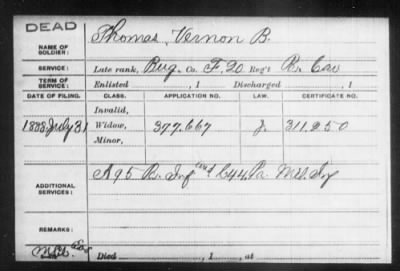 DEAD
NAME OF SOLDIER: Thomas, Vernon B.
SERVICE: Late rank, Bug. Co. F. 20 Reg't Pa. Cav
TERM OF SERVICE: Enlisted , 1 Discharged , 1
DATE OF FILING. CLASS. APPLICATION NO. LAW. CERTIFICATE NO.
Invalid,
1888 July 31 Widow, 377.667 J. 311.250
Minor,
ADDITIONAL SERVICES: A 95 Pa. Inf and C 44. Pa. Mil. Inf
REMARKS:
Died , 1 , at